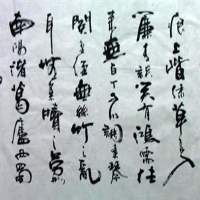 痕上階綠草色入
簾青談笑有鴻儒往
來無白丁可以調素琴
閱金經無絲竹之亂
耳無案牘之勞形
南陽諸葛廬西蜀